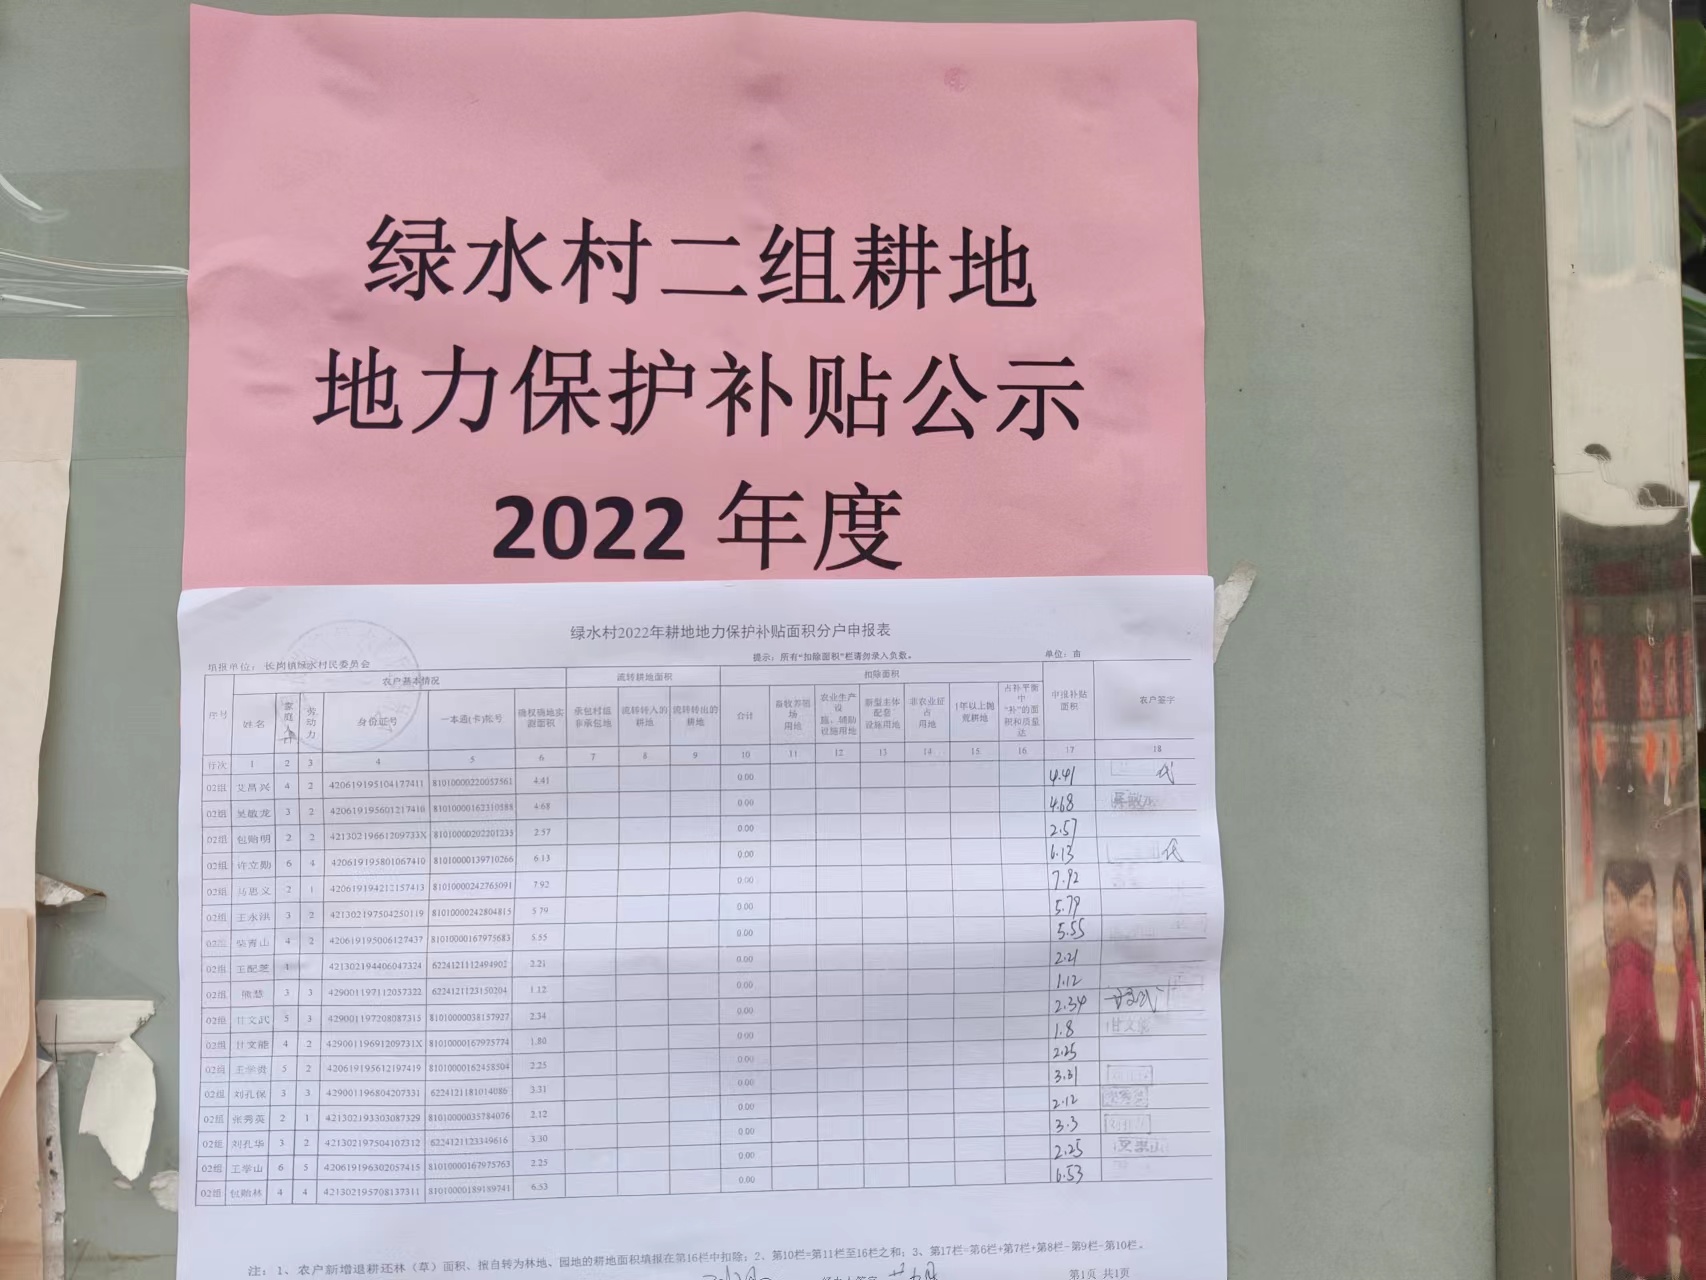 绿水村二组耕地
地力保护补贴公示
2022 年度
绿水村2022年耕地地力保护补贴面积分户申报表
填报单位：长岗镇绿水村民委员会 提示：所有“扣除面积”栏请勿录入负数。 单位：亩
序号 农户基本情况 流转耕地面积 扣除面积 申报补贴面积 农户签字
姓名 家庭人口 劳动力 身份证号 一本通(卡)账号 确权确地实测面积 承包村组非承包地 流转转入的耕地 流转转出的耕地 合计 畜牧养殖场用地 农业生产设施、辅助设施用地 新型主体配套设施用地 非农业征占用地 1年以上抛荒耕地 占补平衡中“补”的面积和质量达
行次 1 2 3 4 5 6 7 8 9 10 11 12 13 14 15 16 17 18
02组 艾昌兴 4 2 420619195104177411 81010000220057561 4.41 0.00 4.41 代
02组 吴敏龙 3 2 420619195601217410 81010000162310588 4.68 0.00 4.68
02组 包贻明 2 2 42130219661209733X 81010000202201233 2.57 0.00 2.57
02组 许立勋 6 4 420619195801067410 81010000139710266 6.13 0.00 6.13 代
02组 马思义 2 1 420619194212157413 81010000242765091 7.92 0.00 7.92
02组 王永洪 3 2 421302197504250119 81010000242804815 5.79 0.00 5.79
02组 柴青山 4 2 420619195006127437 81010000167975683 5.55 0.00 5.55
02组 王配芝 1 421302194406047324 6224121112494902 2.21 0.00 2.21
02组 熊慧 3 3 429001197112057322 6224121123150204 1.12 0.00 1.12
02组 甘文武 5 3 429001197208087315 81010000038157927 2.34 0.00 2.34
02组 甘文能 4 2 42900119691209731X 81010000167975774 1.80 0.00 1.8 甘文能
02组 王学贵 5 2 420619195612197419 81010000162458504 2.25 0.00 2.25
02组 刘孔保 3 3 429001196804207331 6224121181014086 3.31 0.00 3.31
02组 张秀英 2 1 421302193303087329 81010000035784076 2.12 0.00 2.12
02组 刘孔华 3 2 421302197504107312 6224121123349616 3.30 0.00 3.3
02组 王学山 6 5 420619196302057415 81010000167975763 2.25 0.00 2.25
02组 包贻林 4 4 421302195708137311 81010000189189741 6.53 0.00 6.53
注：1、农户新增退耕还林（草）面积、擅自转为林地、园地的耕地面积填报在第16栏中扣除；2、第10栏=第11栏至16栏之和；3、第17栏=第6栏+第7栏+第8栏-第9栏-第10栏。
第1页 共1页